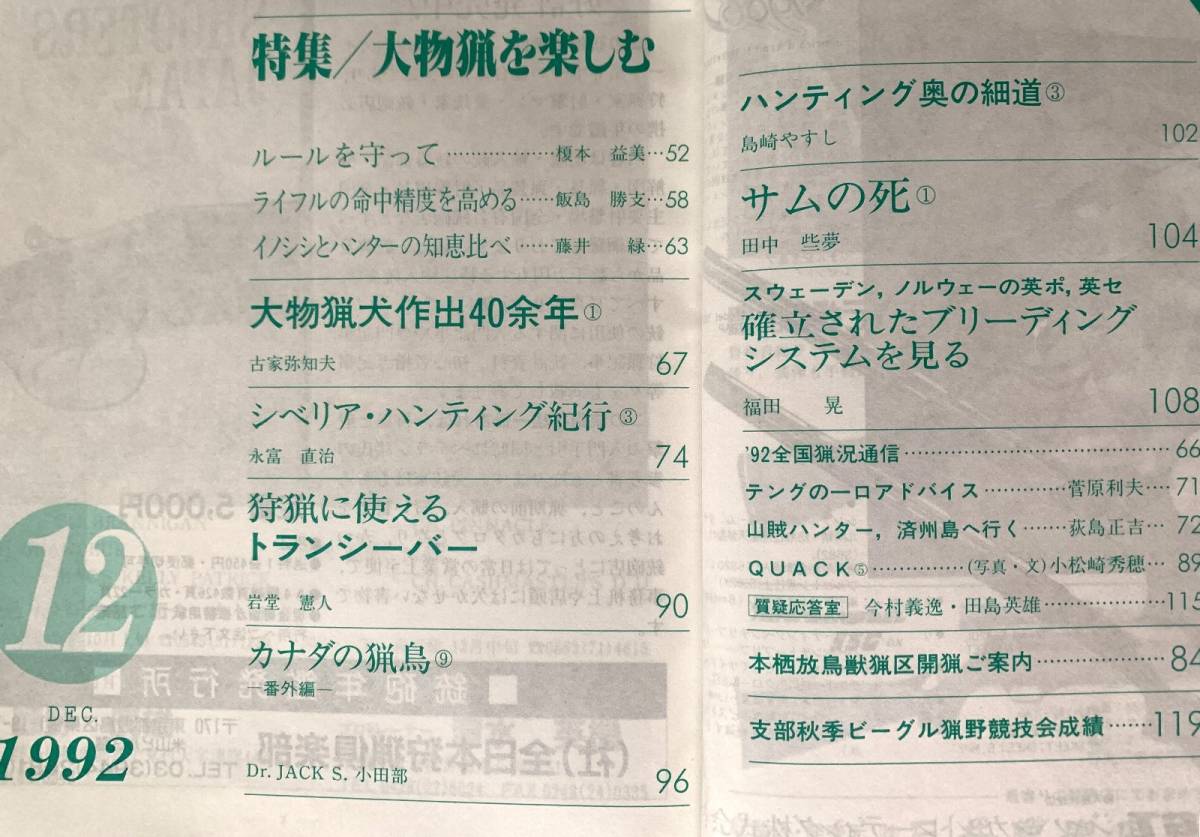 特集/大物猟を楽しむ
ルールを守って………………榎本 益美…52
ライフルの命中精度を高める……飯島 勝支…58
イノシシとハンターの知恵比べ……藤井 緑…63
大物猟犬作出40余年①
古家弥知夫 67
シベリア・ハンティング紀行③
永富 直治 74
狩猟に使える
トランシーバー
岩堂 憲人 90
カナダの猟鳥⑨
―番外編―
Dr. JACK S. 小田部 96
12
DEC.
1992
ハンティング奥の細道③
島崎やすし 102
サムの死①
田中 些夢 104
スウェーデン, ノルウェーの英ポ, 英セ
確立されたブリーディング
システムを見る
福田 晃 108
'92全国猟況通信……………………………66
テングの一口アドバイス…………菅原利夫…71
山賊ハンター, 済州島へ行く……荻島正吉…72
QUACK⑤……………(写真・文)小松崎秀穂…89
質疑応答室 今村義逸・田島英雄………………115
本栖放鳥獣猟区開猟ご案内………………84
支部秋季ビーグル猟野競技会成績……119